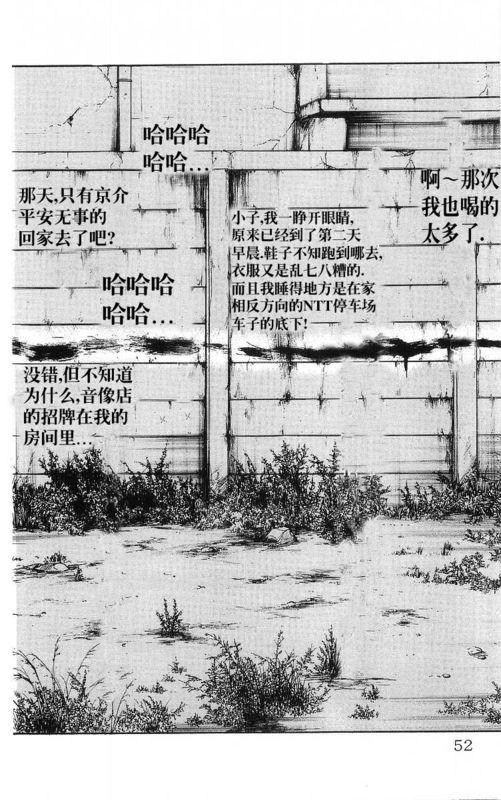 啊～那次
我也喝的
太多了.
小子,我一睁开眼睛,
原来已经到了第二天
早晨.鞋子不知跑到哪去,
衣服又是乱七八糟的.
而且我睡得地方是在家
相反方向的NTT停车场
车子的底下!
哈哈哈
哈哈…
那天,只有京介
平安无事的
回家去了吧?
哈哈哈
哈哈…
没错,但不知道
为什么,音像店
的招牌在我的
房间里…
52